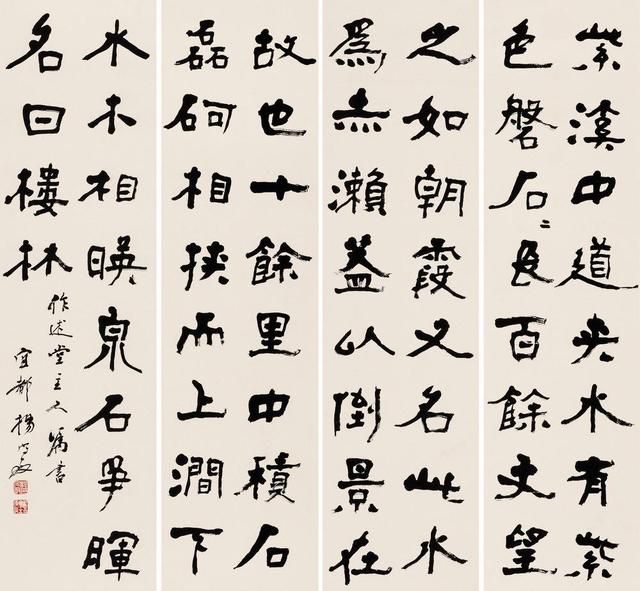 紫溪中道夾水有紫
色磐石〻長百餘丈望
之如朝霞又名此水
爲赤瀨蓋以倒景在
故也十餘里中積石
磊砢相挾而上澗下
水木相暎泉石爭暉
名曰樓林
作述堂主人屬書
宜都楊守敬